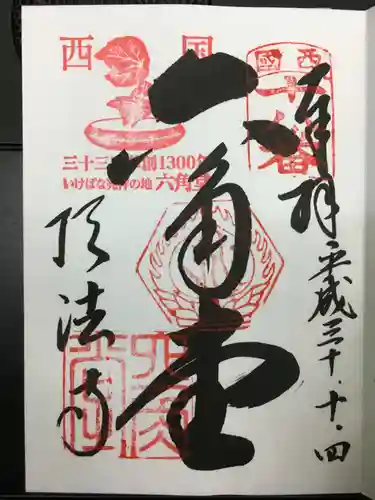 奉拝
平成三十・十・四
六角堂
頂法寺
西国
西國十八番
三十三所草創1300年
いけばな発祥の地 六角堂